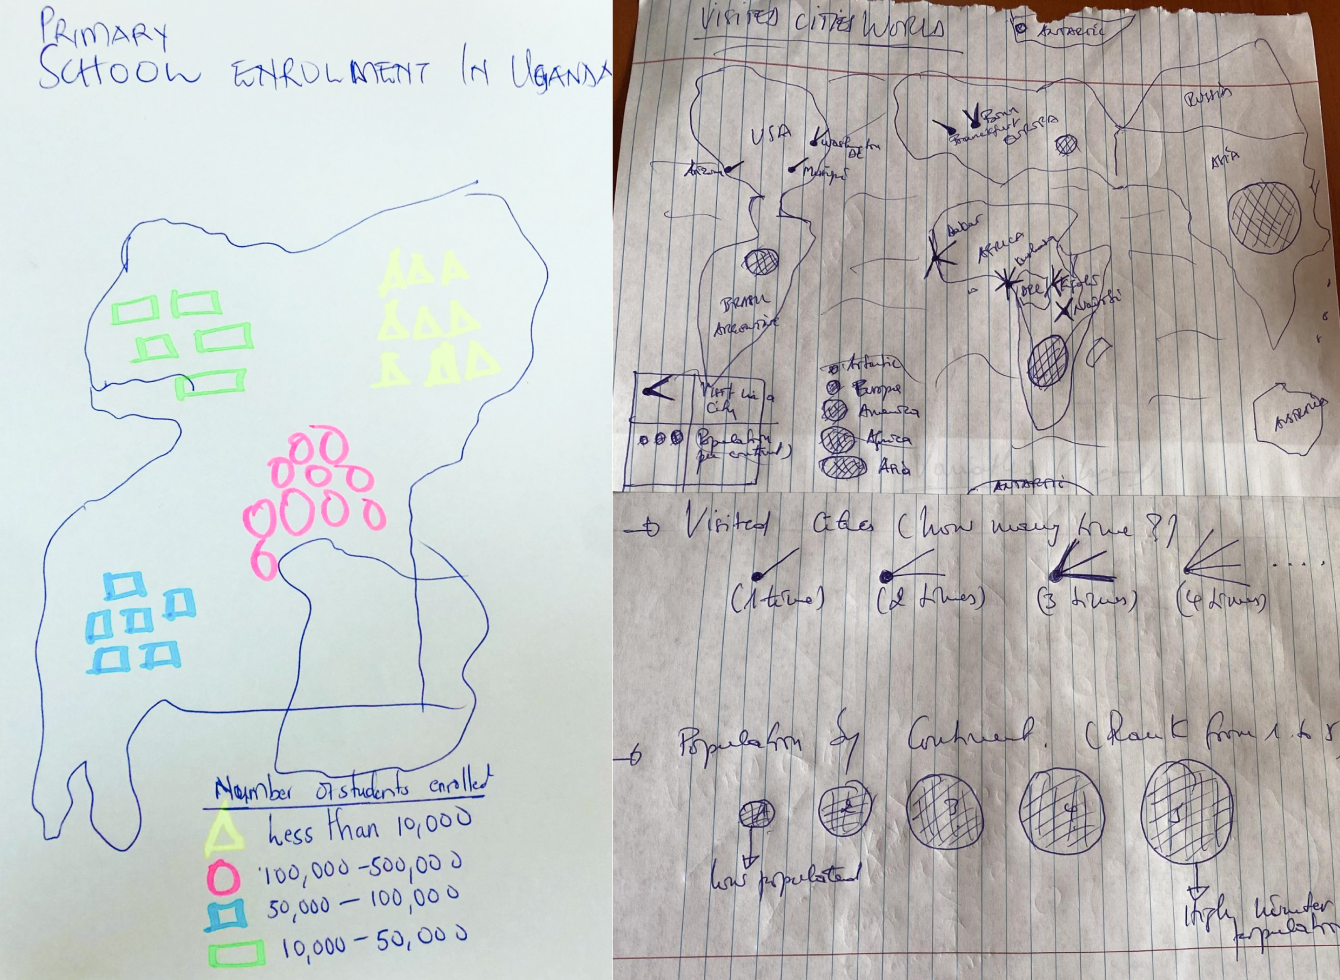 PRIMARY
SCHOOL ENROLMENT IN UGANDA
Number of students enrolled
Less than 10,000
100,000-500,000
50,000-100,000
10,000-50,000
VISITED CITIES WORLD
ANTARTIC
RUSSIA
USA
Washington
DC
Bonn
Frankfurt
ASIA
Dakar
AFRICA
Nairobi
BRASIL
ARGENTINE
Visit in a
City
Population
per continent)
Antartic
Europa
America
Africa
Asia
ANTARTIC
Visited Cities (how many time?)
(1 time)
(2 times)
(3 times)
(4 times)
....
Population by Continent. (Rank from 1 to 5
1
2
3
4
5
low populated
Higly
population